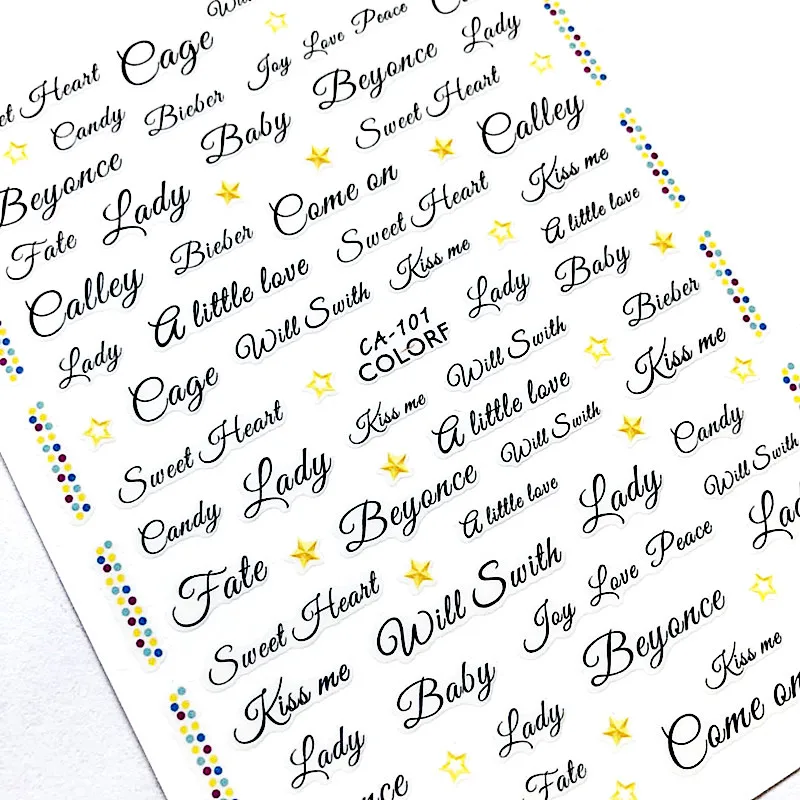 Cage
Joy Love Peace
Sweet Heart
Candy
Bieber
Beyonce
Lady
Baby
Sweet Heart
Calley
Beyonce
Lady
Come on
Kiss me
Fate
Bieber
Sweet Heart
A little love
Calley
A little love
Kiss me
Baby
Lady
Will Swith
CA-101
COLORF
Lady
Bieber
Cage
Kiss me
Will Swith
Kiss me
Sweet Heart
A little love
Candy
Lady
Will Swith
Candy
Beyonce
A little love
Lady
Will Swith
Fate
Sweet Heart
Will Swith
Joy Love Peace
Lady
Kiss me
Baby
Beyonce
Kiss me
Lady
Lady
Come on
Fate